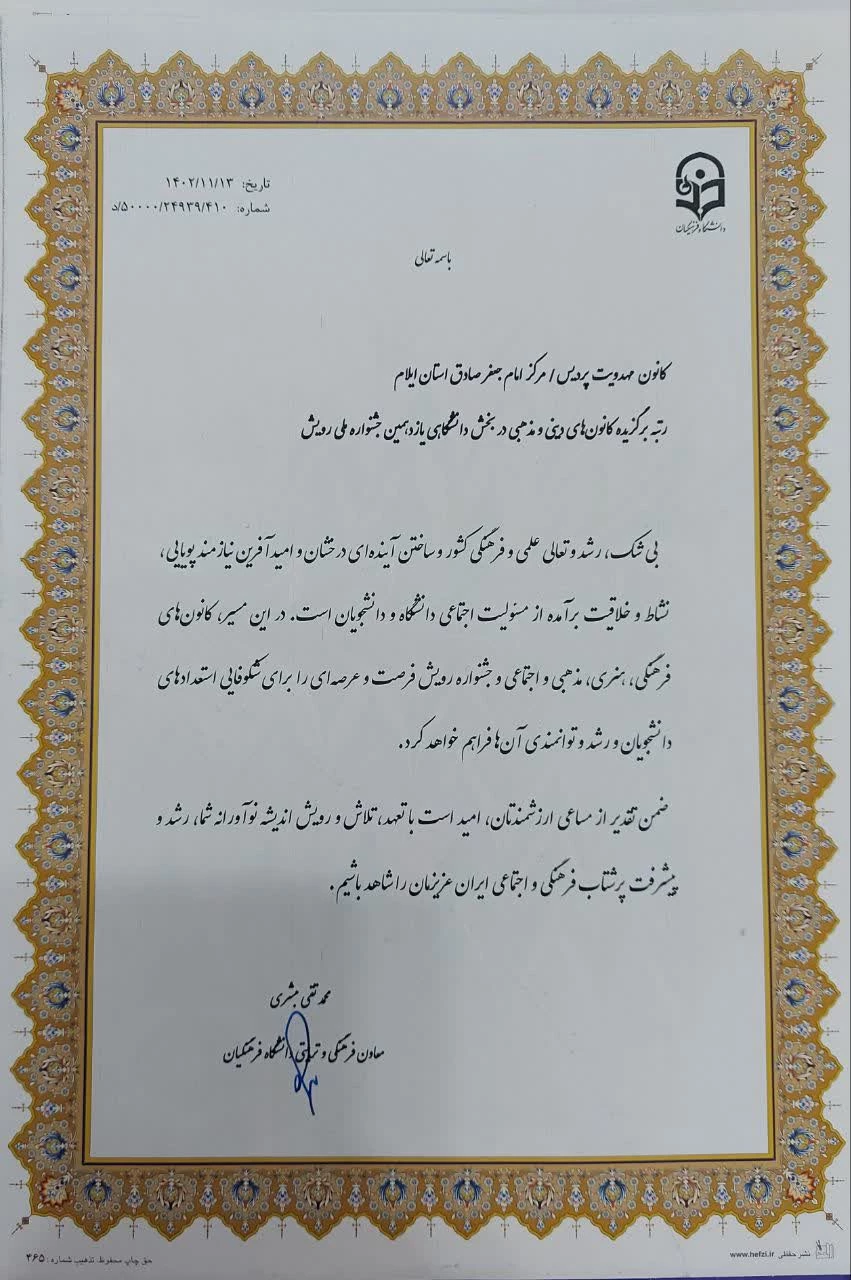 دانشگاه فرهنگیان
تاریخ: ۱۴۰۲/۱۱/۱۳
شماره: ۵۰۰۰۰/۲۴۹۳۹/۴۱۰/د
باسمه تعالی
کانون مهدویت پردیس / مرکز امام جعفر صادق استان ایلام
رتبه برگزیده کانون‌های دینی و مذهبی در بخش دانشگاهی یازدهمین جشنواره ملی رویش
بی شک، رشد و تعالی علمی و فرهنگی کشور و ساختن آینده‌ای درخشان و امیدآفرین نیازمند پویایی،
نشاط و خلاقیت برآمده از مسئولیت اجتماعی دانشگاه و دانشجویان است. در این مسیر، کانون‌های
فرهنگی، هنری، مذهبی و اجتماعی و جشنواره رویش فرصت و عرصه‌ای را برای شکوفایی استعدادهای
دانشجویان و رشد و توانمندی آن‌ها فراهم خواهد کرد.
ضمن تقدیر از مساعی ارزشمندتان، امید است با تعهد، تلاش و رویش اندیشه نوآورانه شما، رشد و
پیشرفت پرشتاب فرهنگی و اجتماعی ایران عزیزمان را شاهد باشیم.
محمد تقی مبشری
معاون فرهنگی و تربیتی دانشگاه فرهنگیان
نشر حفظی www.hefzi.ir
حق چاپ محفوظ. تذهیب شماره: ۴۶۵